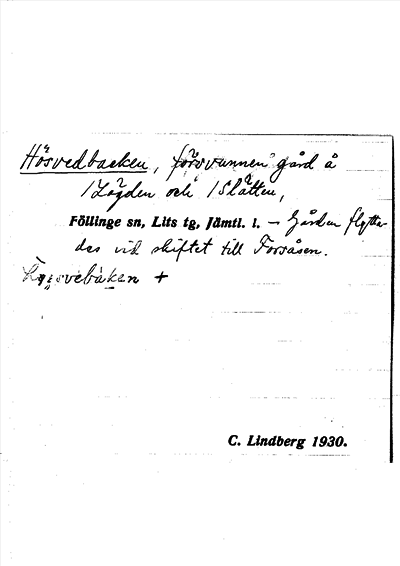 Hösvedbacken, försvunnen gård å
1 Lögden och 1 Slåtten,
Föllinge sn, Lits tg, Jämtl. l. — Gården flytta-
des vid skiftet till Forsåsen.
+
C. Lindberg 1930.